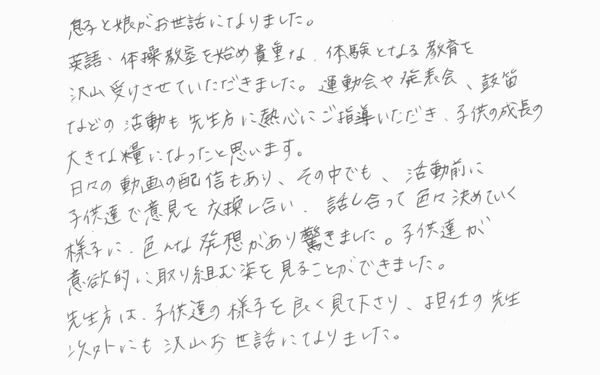 息子と娘がお世話になりました。
英語・体操教室を始め貴重な、体験となる教育を
沢山受けさせていただきました。運動会や発表会、鼓笛
などの活動も先生方に熱心にご指導いただき、子供の成長の
大きな糧になったと思います。
日々の動画の配信もあり、その中でも、活動前に
子供達で意見を交換し合い、話し合って色々決めていく
様子に、色んな発想があり驚きました。子供達が
意欲的に取り組む姿を見ることができました。
先生方は、子供達の様子を良く見て下さり、担任の先生
以外にも沢山お世話になりました。